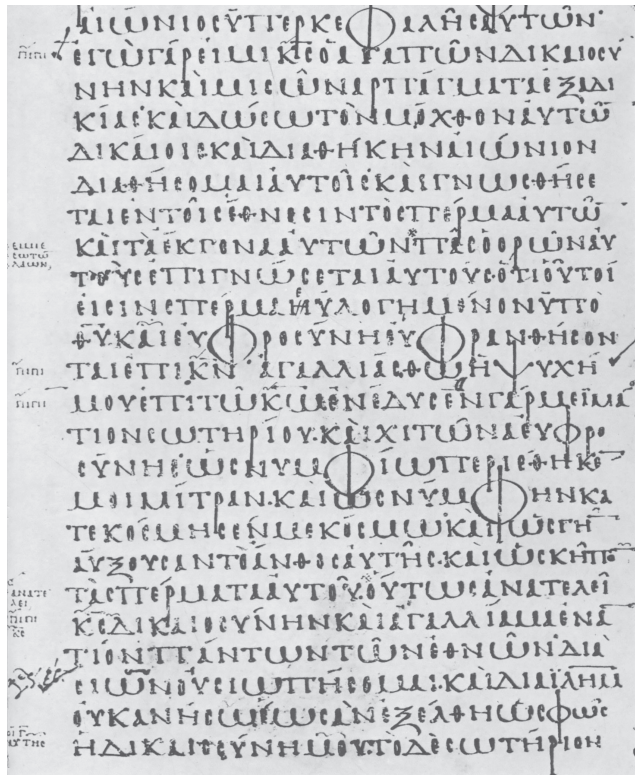 ΑΙΩΝΙΟϹΥΠΕΡΚΕΦΑΛΗϹΑΥΤΩΝ·
ΠΙΠΙ
ΕΓΩΓΑΡΕΙΜΙΚ̅Ϲ̅ΟΑΓΑΠΩΝΔΙΚΑΙΟϹΥ
ΝΗΝΚΑΙΜΙϹΩΝΑΡΠΑΓΜΑΤΑΕΞΑΔΙ
ΚΙΑϹΚΑΙΔΩϹΩΤΟΝΜΟΧΘΟΝΑΥΤΩ̅
ΔΙΚΑΙΟΙϹΚΑΙΔΙΑΘΗΚΗΝΑΙΩΝΙΟΝ
ΔΙΑΘΗϹΟΜΑΙΑΥΤΟΙϹΚΑΙΓΝΩϹΘΗϹΕ
ΤΑΙΕΝΤΟΙϹΕΘΝΕϹΙΝΤΟϹΠΕΡΜΑΑΥΤΩ̅
ΚΑΙΤΑΕΚΓΟΝΑΑΥΤΩΝΠΑϹΟΟΡΩΝΑΥ
ΤΟΥϹΕΠΙΓΝΩϹΕΤΑΙΑΥΤΟΥϹ·ΟΤΙΟΥΤΟΙ
ΕΙϹΙΝϹΠΕΡΜΑΗΥΛΟΓΗΜΕΝΟΝΥΠΟ
Θ̅Υ̅ΚΑΙΕΥΦΡΟϹΥΝΗΕΥΦΡΑΝΘΗϹΟΝ
ΠΙΠΙ
ΤΑΙΕΠΙΚ̅Ν̅ ΑΓΑΛΛΙΑϹΘΩΗΨΥΧΗ
ΠΙΠΙ
ΜΟΥΕΠΙΤΩΚ̅Ω̅ΕΝΕΔΥϹΕΝΓΑΡΜΕΙΜΑ
ΤΙΟΝϹΩΤΗΡΙΟΥ·ΚΑΙΧΙΤΩΝΑΕΥΦΡΟ
ϹΥΝΗϹΩϹΝΥΜΦΙΩΠΕΡΙΕΘΗΚΕ
ΜΟΙΜΙΤΡΑΝ·ΚΑΙΩϹΝΥΜΦΗΝΚΑ
ΤΕΚΟϹΜΗϹΕΝΜΕΚΟϹΜΩΚΑΙΩϹΓΗ
ΑΥΞΟΥϹΑΝΤΟΑΝΘΟϹΑΥΤΗϹ·ΚΑΙΩϹΚΗΠΟϹ
ΤΑϹΠΕΡΜΑΤΑΑΥΤΟΥΟΥΤΩϹΑΝΑΤΕΛΕΙ
ΠΙΠΙ
Κ̅Ϲ̅ΔΙΚΑΙΟϹΥΝΗΝΚΑΙΑΓΑΛΛΙΑΜΑΕΝΑ
ΤΙΟΝΠΑΝΤΩΝΤΩΝΕΘΝΩΝΔΙΑ
ϹΙΩΝΟΥϹΙΩΠΗϹΟΜΑΙ·ΚΑΙΔΙΑΙ̅Λ̅Η̅Μ̅
ΟΥΚΑΝΗϹΩΕΩϹΑΝΕΞΕΛΘΗΩϹΦΩϹ
ΗΔΙΚΑΙΟϹΥΝΗΜΟΥ·ΤΟΔΕϹΩΤΗΡΙΟΝ